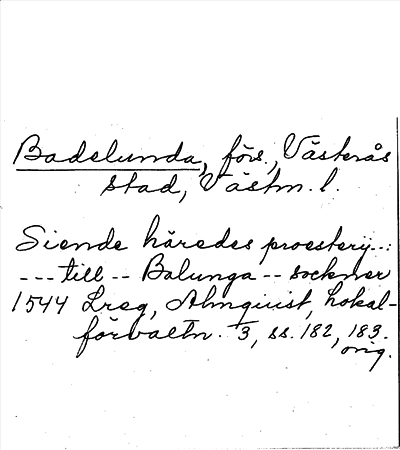 Badelunda, förs., Västerås
stad, Västm. l.
Siende häredes proestery...:
--- till -- Balunga -- sockner
1544 Lreg, Almquist, Lokal-
förvaltn. 3, ss. 182, 183.
orig.